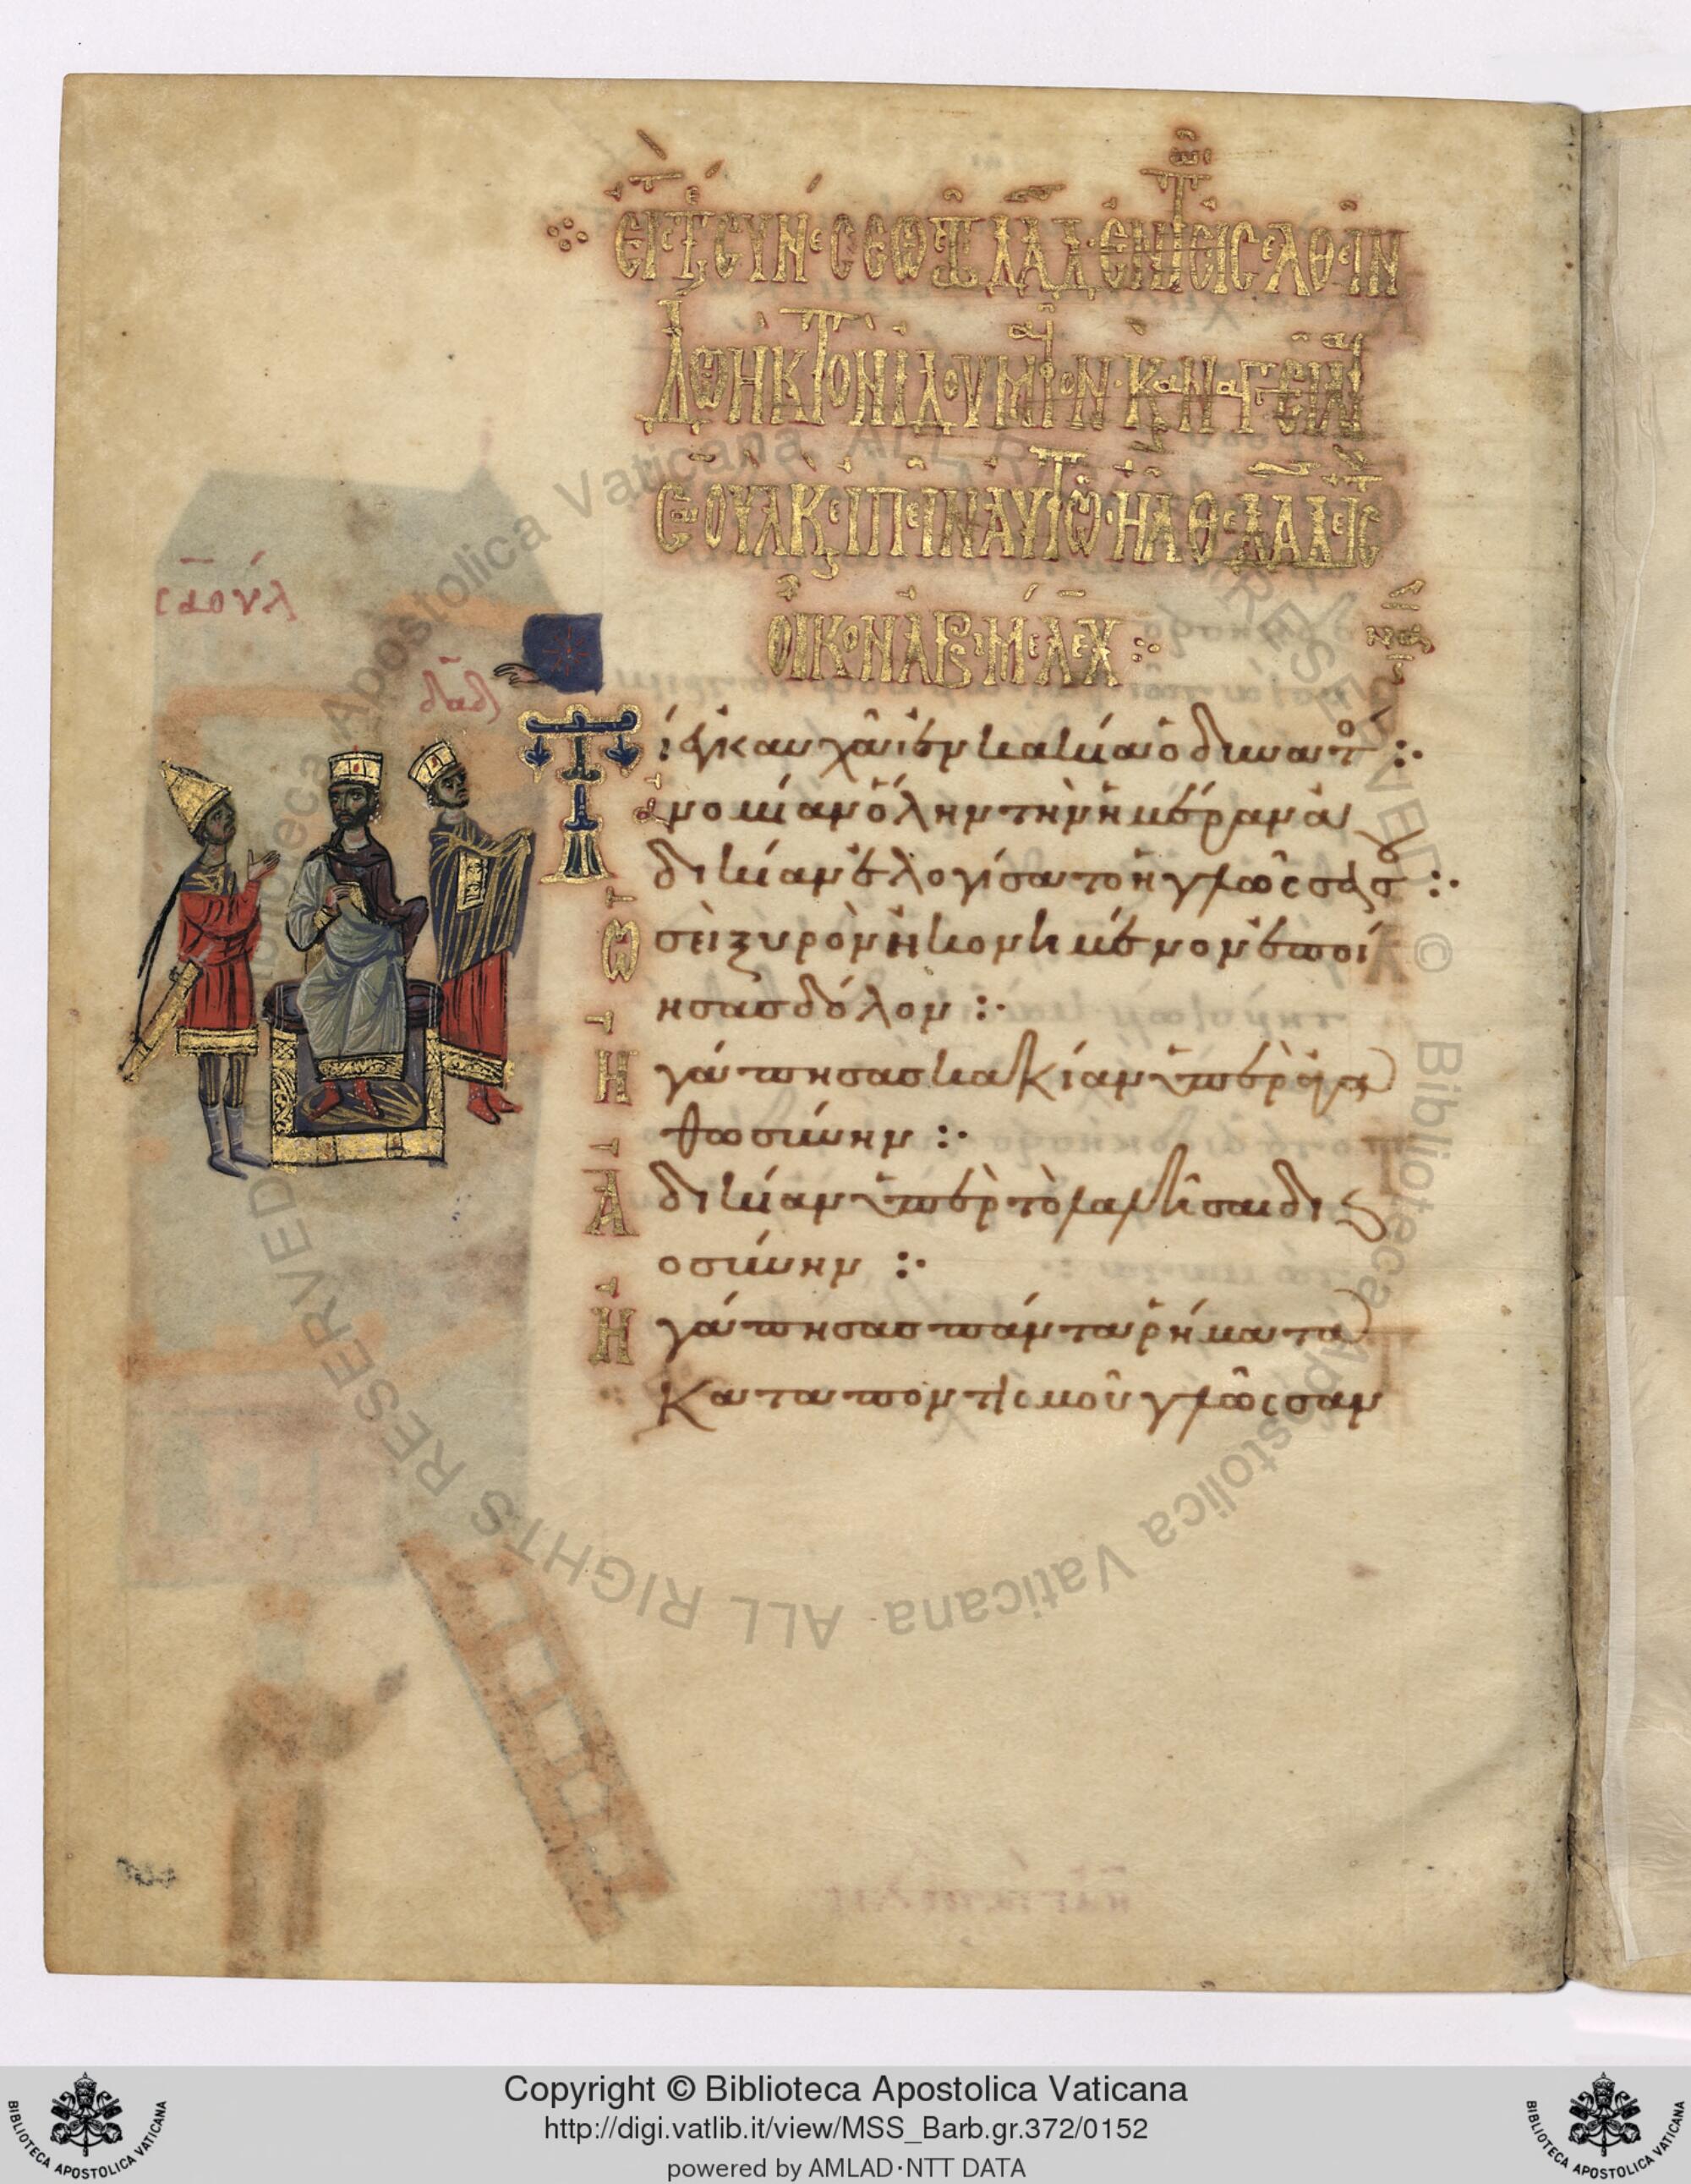 εἰς τὸ τέλος συνέσεως τῷ δαδ ἐν τῷ ἐλθεῖν
δωὴκ τὸν ἰδουμαῖον καὶ ἀναγγεῖλαι
σαοὺλ καὶ εἰπεῖν αὐτῷ ἦλθε δαδ εἰς
οἶκον ἀβιμέλεχ :·
νά
σαούλ
δαδ
Τί ἐγκαυχᾶ ἐν κακία ὁ δυνατός :·
ἀνομίαν ὅλην τὴν ἡμέραν ἀ
δικίαν ἐλογίσατο ἡ γλῶσσά σου :·
Ὡσεὶ ξυρὸν ἠκονημένον ἐποί
ησας δόλον :·
Ἠγάπησας κακίαν ὑπὲρ ἀγα
θωσύνην :·
Ἀδικίαν ὑπὲρ τὸ λαλῆσαι δικαι
οσύνην :·
Ἠγάπησας πάντα τὰ ῥήματα
καταποντισμοῦ γλῶσσαν
© Biblioteca Apostolica Vaticana ALL RIGHTS RESERVED
Copyright © Biblioteca Apostolica Vaticana
http://digi.vatlib.it/view/MSS_Barb.gr.372/0152
powered by AMLAD·NTT DATA
BIBLIOTECA APOSTOLICA VATICANA
BIBLIOTECA APOSTOLICA VATICANA